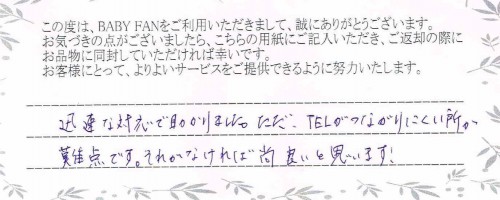 この度は、BABY FANをご利用いただきまして、誠にありがとうございます。
お気づきの点がございましたら、こちらの用紙にご記入いただき、ご返却の際に
お品物に同封していただければ幸いです。
お客様にとって、よりよいサービスをご提供できるように努力いたします。
迅速な対応で助かりました。ただ、TELがつながりにくい所が
難点です。それがなければ尚良いと思います!